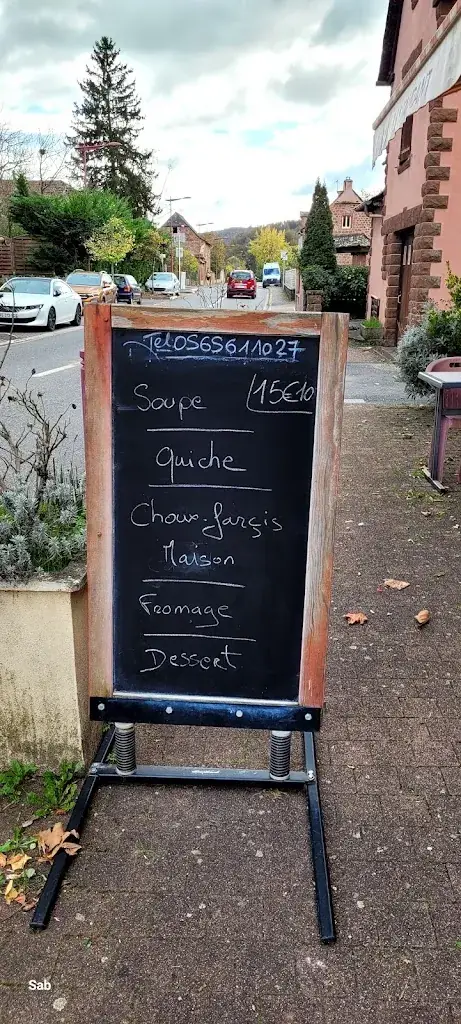 Tel 0565611027
15€10
Soupe
Quiche
Choux-farçis
Maison
Fromage
Dessert
Sab